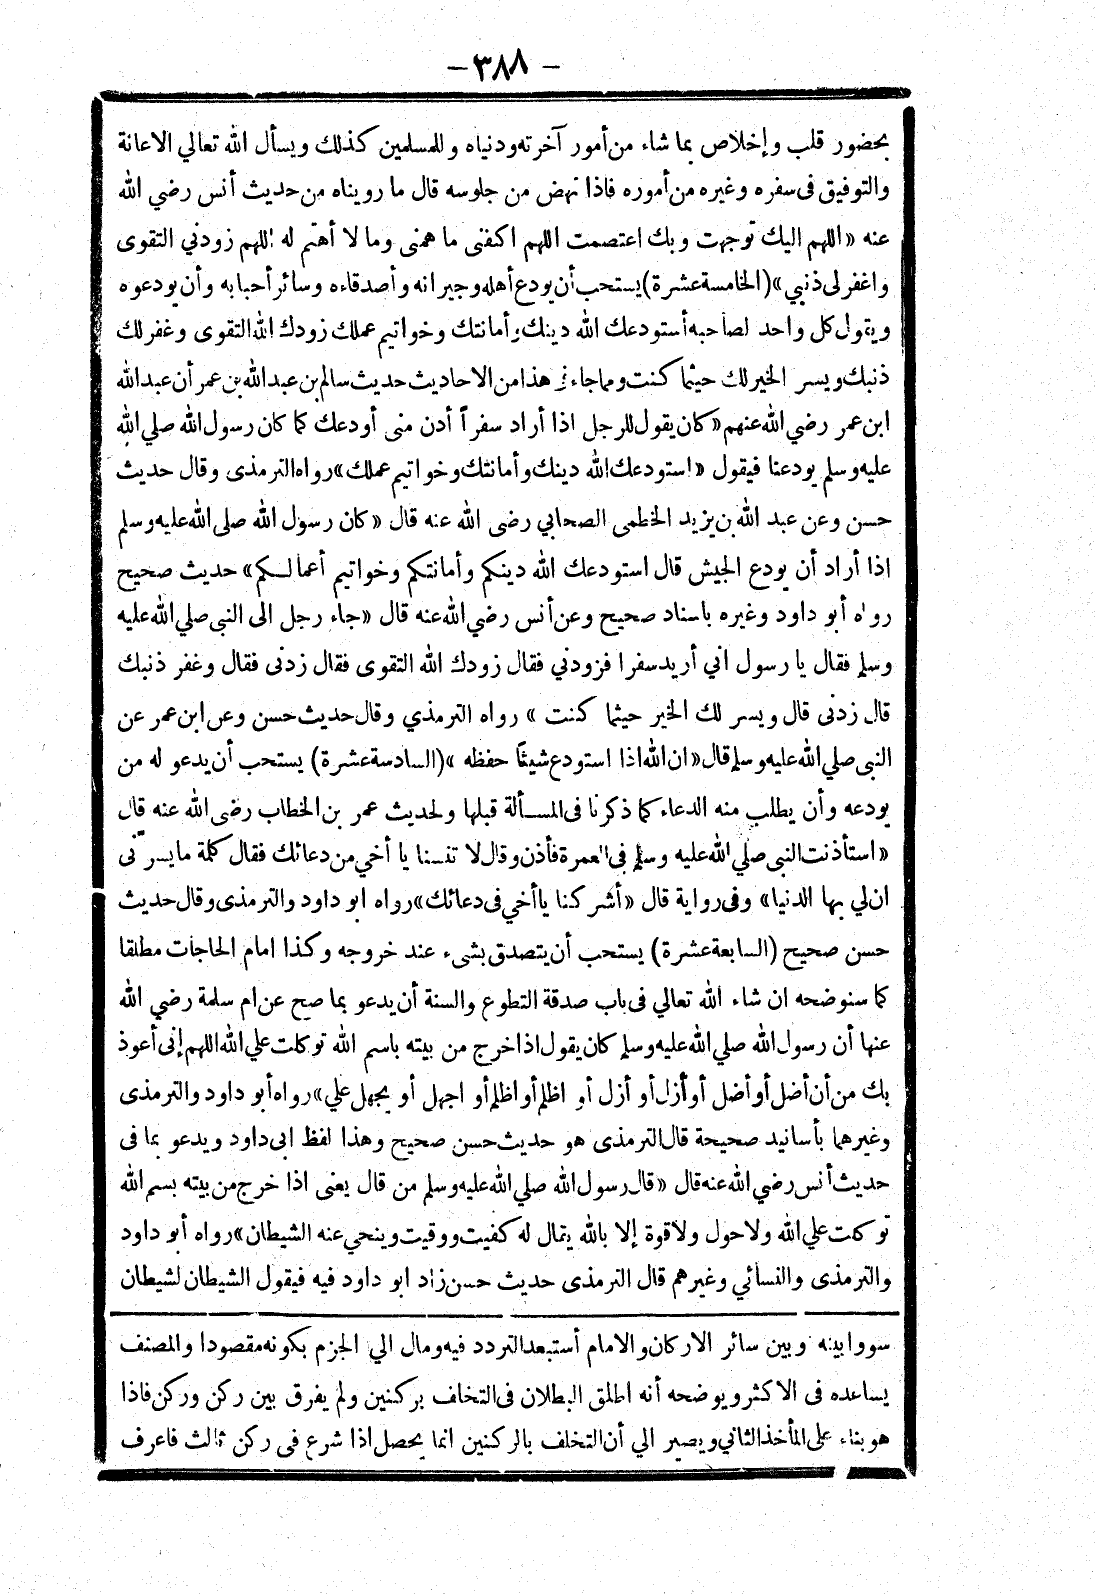 - ٣٨٨ -
بحضور قلب وإخلاص بما شاء من أمور آخرته ودنياه وللمسلمين كذلك ويسأل الله تعالي الاعانة
والتوفيق فى سفره وغيره من أموره فاذا نهض من جلوسه قال ما رويناه من حديث أنس رضي الله
عنه «اللهم اليك توجهت وبك اعتصمت اللهم اكفنى ما همنى وما لا أهتم له اللهم زودني التقوى
واغفر لى ذنبي» (الخامسة عشرة) يستحب أن يودع أهله وجيرانه وأصدقاءه وسائر أحبابه وأن يودعوه
ويقول كل واحد لصاحبه أستودعك الله دينك وأمانتك وخواتيم عملك زودك الله التقوى وغفر لك
ذنبك ويسر الخير لك حيثما كنت ومما جاء فى هذا من الاحاديث حديث سالم بن عبد الله بن عمر أن عبد الله
ابن عمر رضي الله عنهم «كان يقول للرجل اذا أراد سفراً أدن منى أودعك كما كان رسول الله صلي الله
عليه وسلم يودعنا فيقول «استودعك الله دينك وأمانتك وخواتيم عملك» رواه الترمذى وقال حديث
حسن وعن عبد الله بن يزيد الخطمى الصحابي رضى الله عنه قال «كان رسول الله صلى الله عليه وسلم
اذا أراد أن يودع الجيش قال استودعك الله دينكم وأمانتكم وخواتيم أعمالكم» حديث صحيح
رواه أبو داود وغيره باسناد صحيح وعن أنس رضي الله عنه قال «جاء رجل الى النبى صلي الله عليه
وسلم فقال يا رسول اني أريد سفرا فزودني فقال زودك الله التقوى فقال زدنى فقال وغفر ذنبك
قال زدنى قال ويسر لك الخير حيثما كنت » رواه الترمذي وقال حديث حسن وعن ابن عمر عن
النبى صلي الله عليه وسلم قال «ان الله اذا استودع شيئا حفظه » (السادسة عشرة) يستحب أن يدعو له من
يودعه وأن يطلب منه الدعاء كما ذكرنا فى المسألة قبلها ولحديث عمر بن الخطاب رضى الله عنه قال
«استأذنت النبى صلي الله عليه وسلم فى العمرة فأذن وقال لا تنسنا يا أخي من دعائك فقال كلمة ما يسرنى
ان لي بها الدنيا» وفى رواية قال «أشركنا يا أخي فى دعائك» رواه ابو داود والترمذى وقال حديث
حسن صحيح (السابعة عشرة) يستحب أن يتصدق بشىء عند خروجه وكذا امام الحاجات مطلقا
كما سنوضحه ان شاء الله تعالي فى باب صدقة التطوع والسنة أن يدعو بما صح عن ام سلمة رضي الله
عنها أن رسول الله صلي الله عليه وسلم كان يقول اذا خرج من بيته باسم الله توكلت علي الله اللهم إنى أعوذ
بك من أن أضل أو أضل أو أزل أو أزل أو اظلم أو اظلم أو اجهل أو يجهل علي» رواه أبو داود والترمذى
وغيرهما بأسانيد صحيحة قال الترمذى هو حديث حسن صحيح وهذا لفظ ابى داود ويدعو بما فى
حديث أنس رضي الله عنه قال «قال رسول الله صلي الله عليه وسلم من قال يعنى اذا خرج من بيته بسم الله
توكلت علي الله ولا حول ولا قوة إلا بالله يقال له كفيت ووقيت وينحي عنه الشيطان» رواه أبو داود
والترمذى والنسائي وغيرهم قال الترمذى حديث حسن زاد ابو داود فيه فيقول الشيطان لشيطان
سووا بينه وبين سائر الاركان والامام أستبعد التردد فيه ومال الي الجزم بكونه مقصودا والمصنف
يساعده فى الاكثر ويوضحه أنه اطلق البطلان فى التخلف بركنين ولم يفرق بين ركن وركن فاذا
هو بناء على المأخذ الثاني ويصير الي أن التخلف بالركنين انما يحصل اذا شرع فى ركن ثالث فاعرف